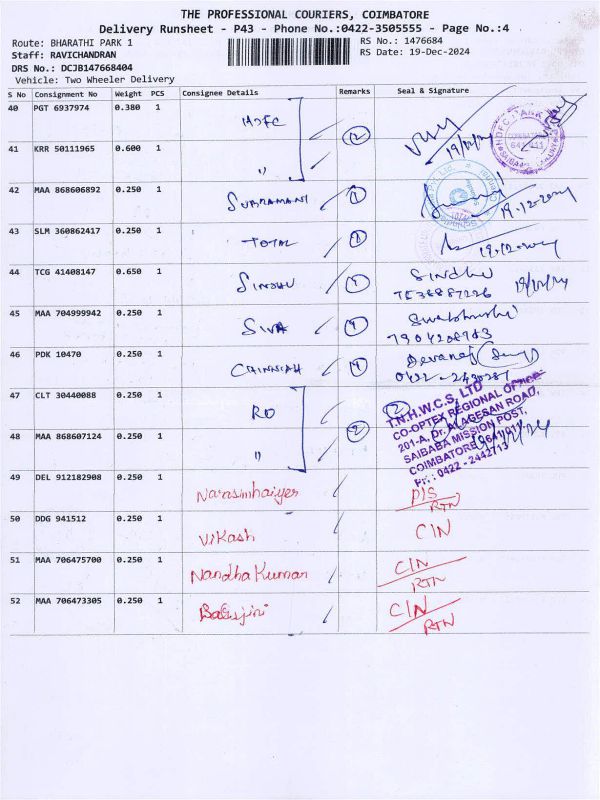 THE PROFESSIONAL COURIERS, COIMBATORE
Delivery Runsheet - P43 - Phone No.:0422-3505555 - Page No.:4
Route: BHARATHI PARK 1 RS No.: 1476684
Staff: RAVICHANDRAN RS Date: 19-Dec-2024
DRS No.: DCJB147668404
Vehicle: Two Wheeler Delivery
S No Consignment No Weight PCS Consignee Details Remarks Seal & Signature
40 PGT 6937974 0.380 1 HDFC 2 19/12/24
41 KRR 50111965 0.600 1 "
42 MAA 868606892 0.250 1 SUBRAMANI 1 19.12.2024
43 SLM 360862417 0.250 1 TOTAL 1
44 TCG 41408147 0.650 1 SINDHU 1 Sindhu 19/12/24
45 MAA 704999942 0.250 1 SIVA 1
46 PDK 10470 0.250 1 CHINNIAH 1 Devaraj
47 CLT 30440088 0.250 1 RO 2
T.N.H.W.C.S, LTD
CO-OPTEX REGIONAL Office
201-A, Dr. ALAGESAN ROAD,
SAIBABA MISSION POST,
COIMBATORE - 641 011
Ph : 0422 - 2442713
48 MAA 868607124 0.250 1 "
49 DEL 912182908 0.250 1 Narasimhaiyer D/S RTN
50 DDG 941512 0.250 1 Vikash C/N
51 MAA 706475700 0.250 1 Nandha Kumar C/N RTN
52 MAA 706473305 0.250 1 C/N RTN